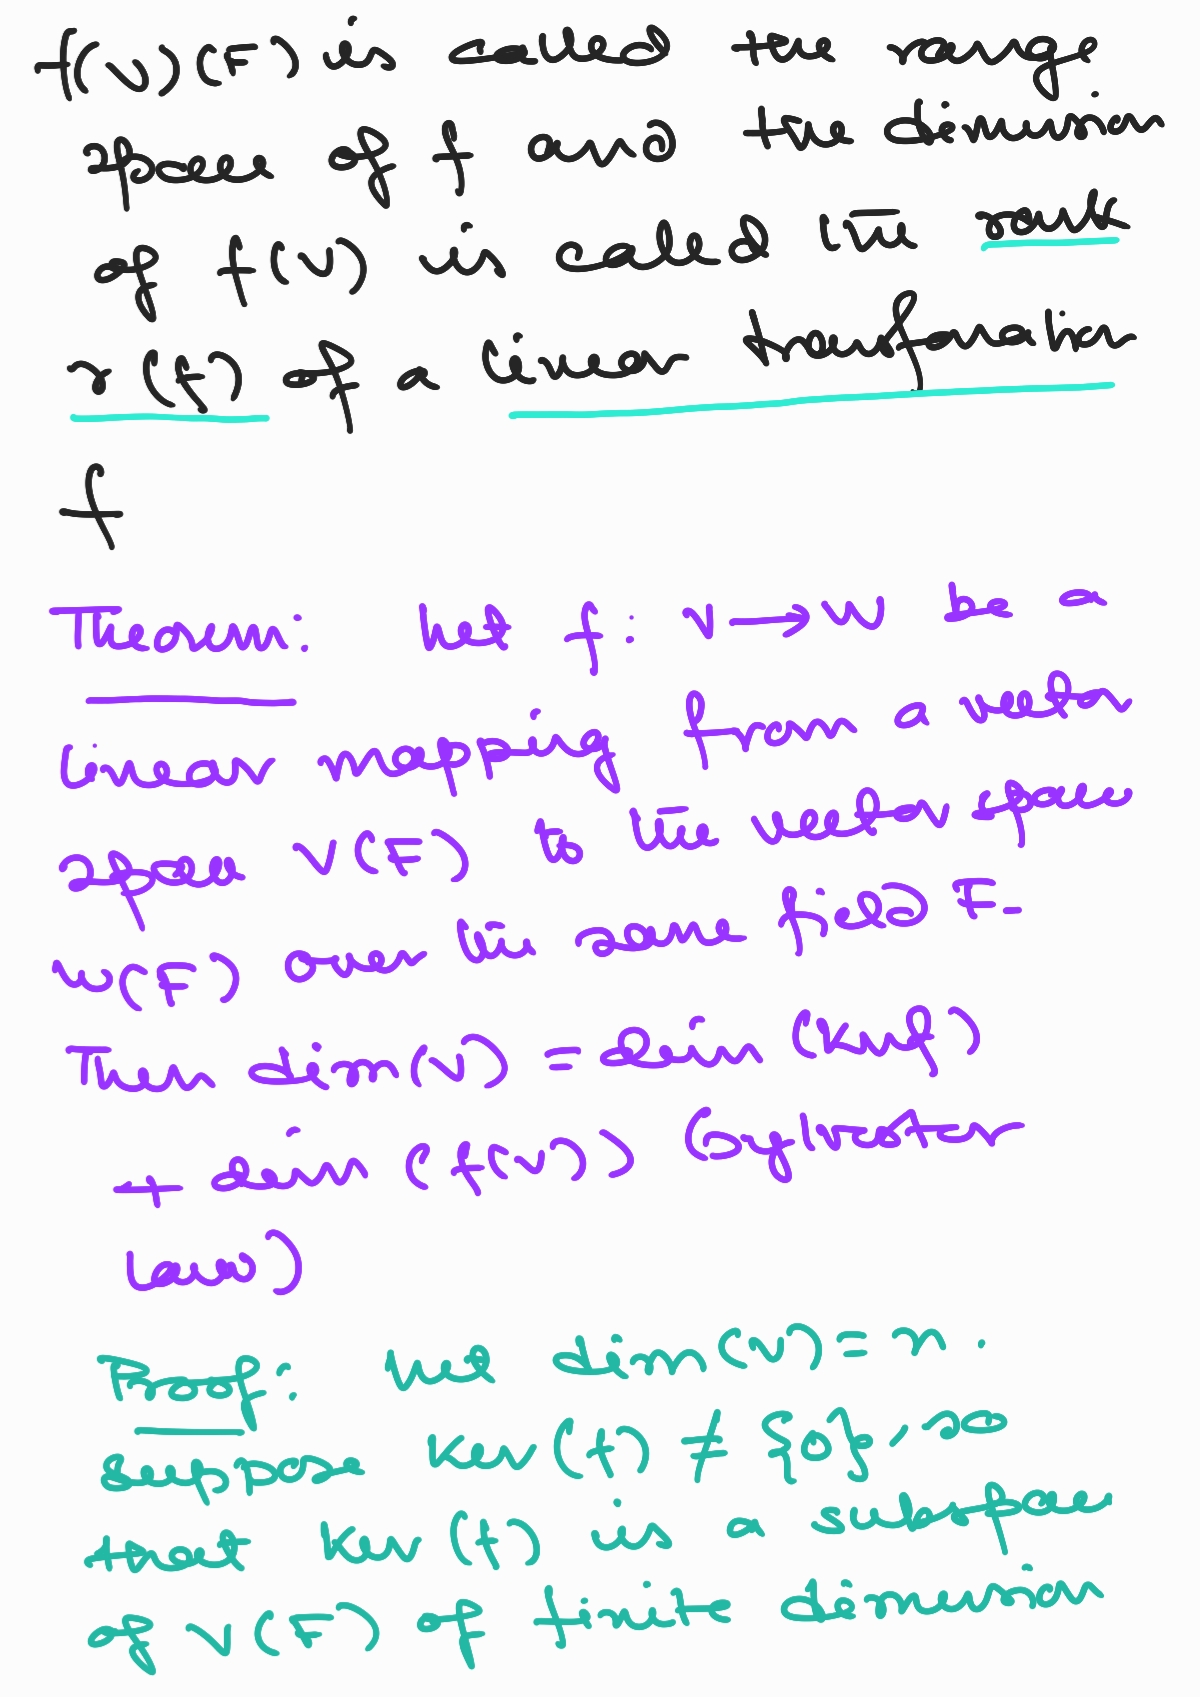 f(V)(F) is called the range
space of f and the dimension
of f(V) is called the rank
r(f) of a linear transformation
f
Theorem: Let f: V→W be a
linear mapping from a vector
space V(F) to the vector space
W(F) over the same field F.
Then dim(V) = dim (Kerf)
+ dim (f(V)) (Sylvester
law)
Proof: Let dim(V) = n.
Suppose Ker(f) ≠ {0}, so
that Ker(f) is a subspace
of V(F) of finite dimension